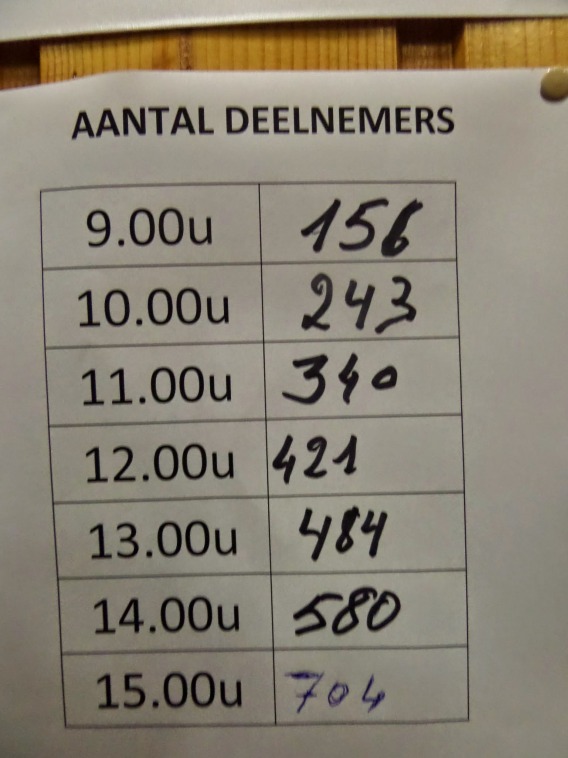 AANTAL DEELNEMERS
9.00u 156
10.00u 243
11.00u 340
12.00u 421
13.00u 484
14.00u 580
15.00u 704